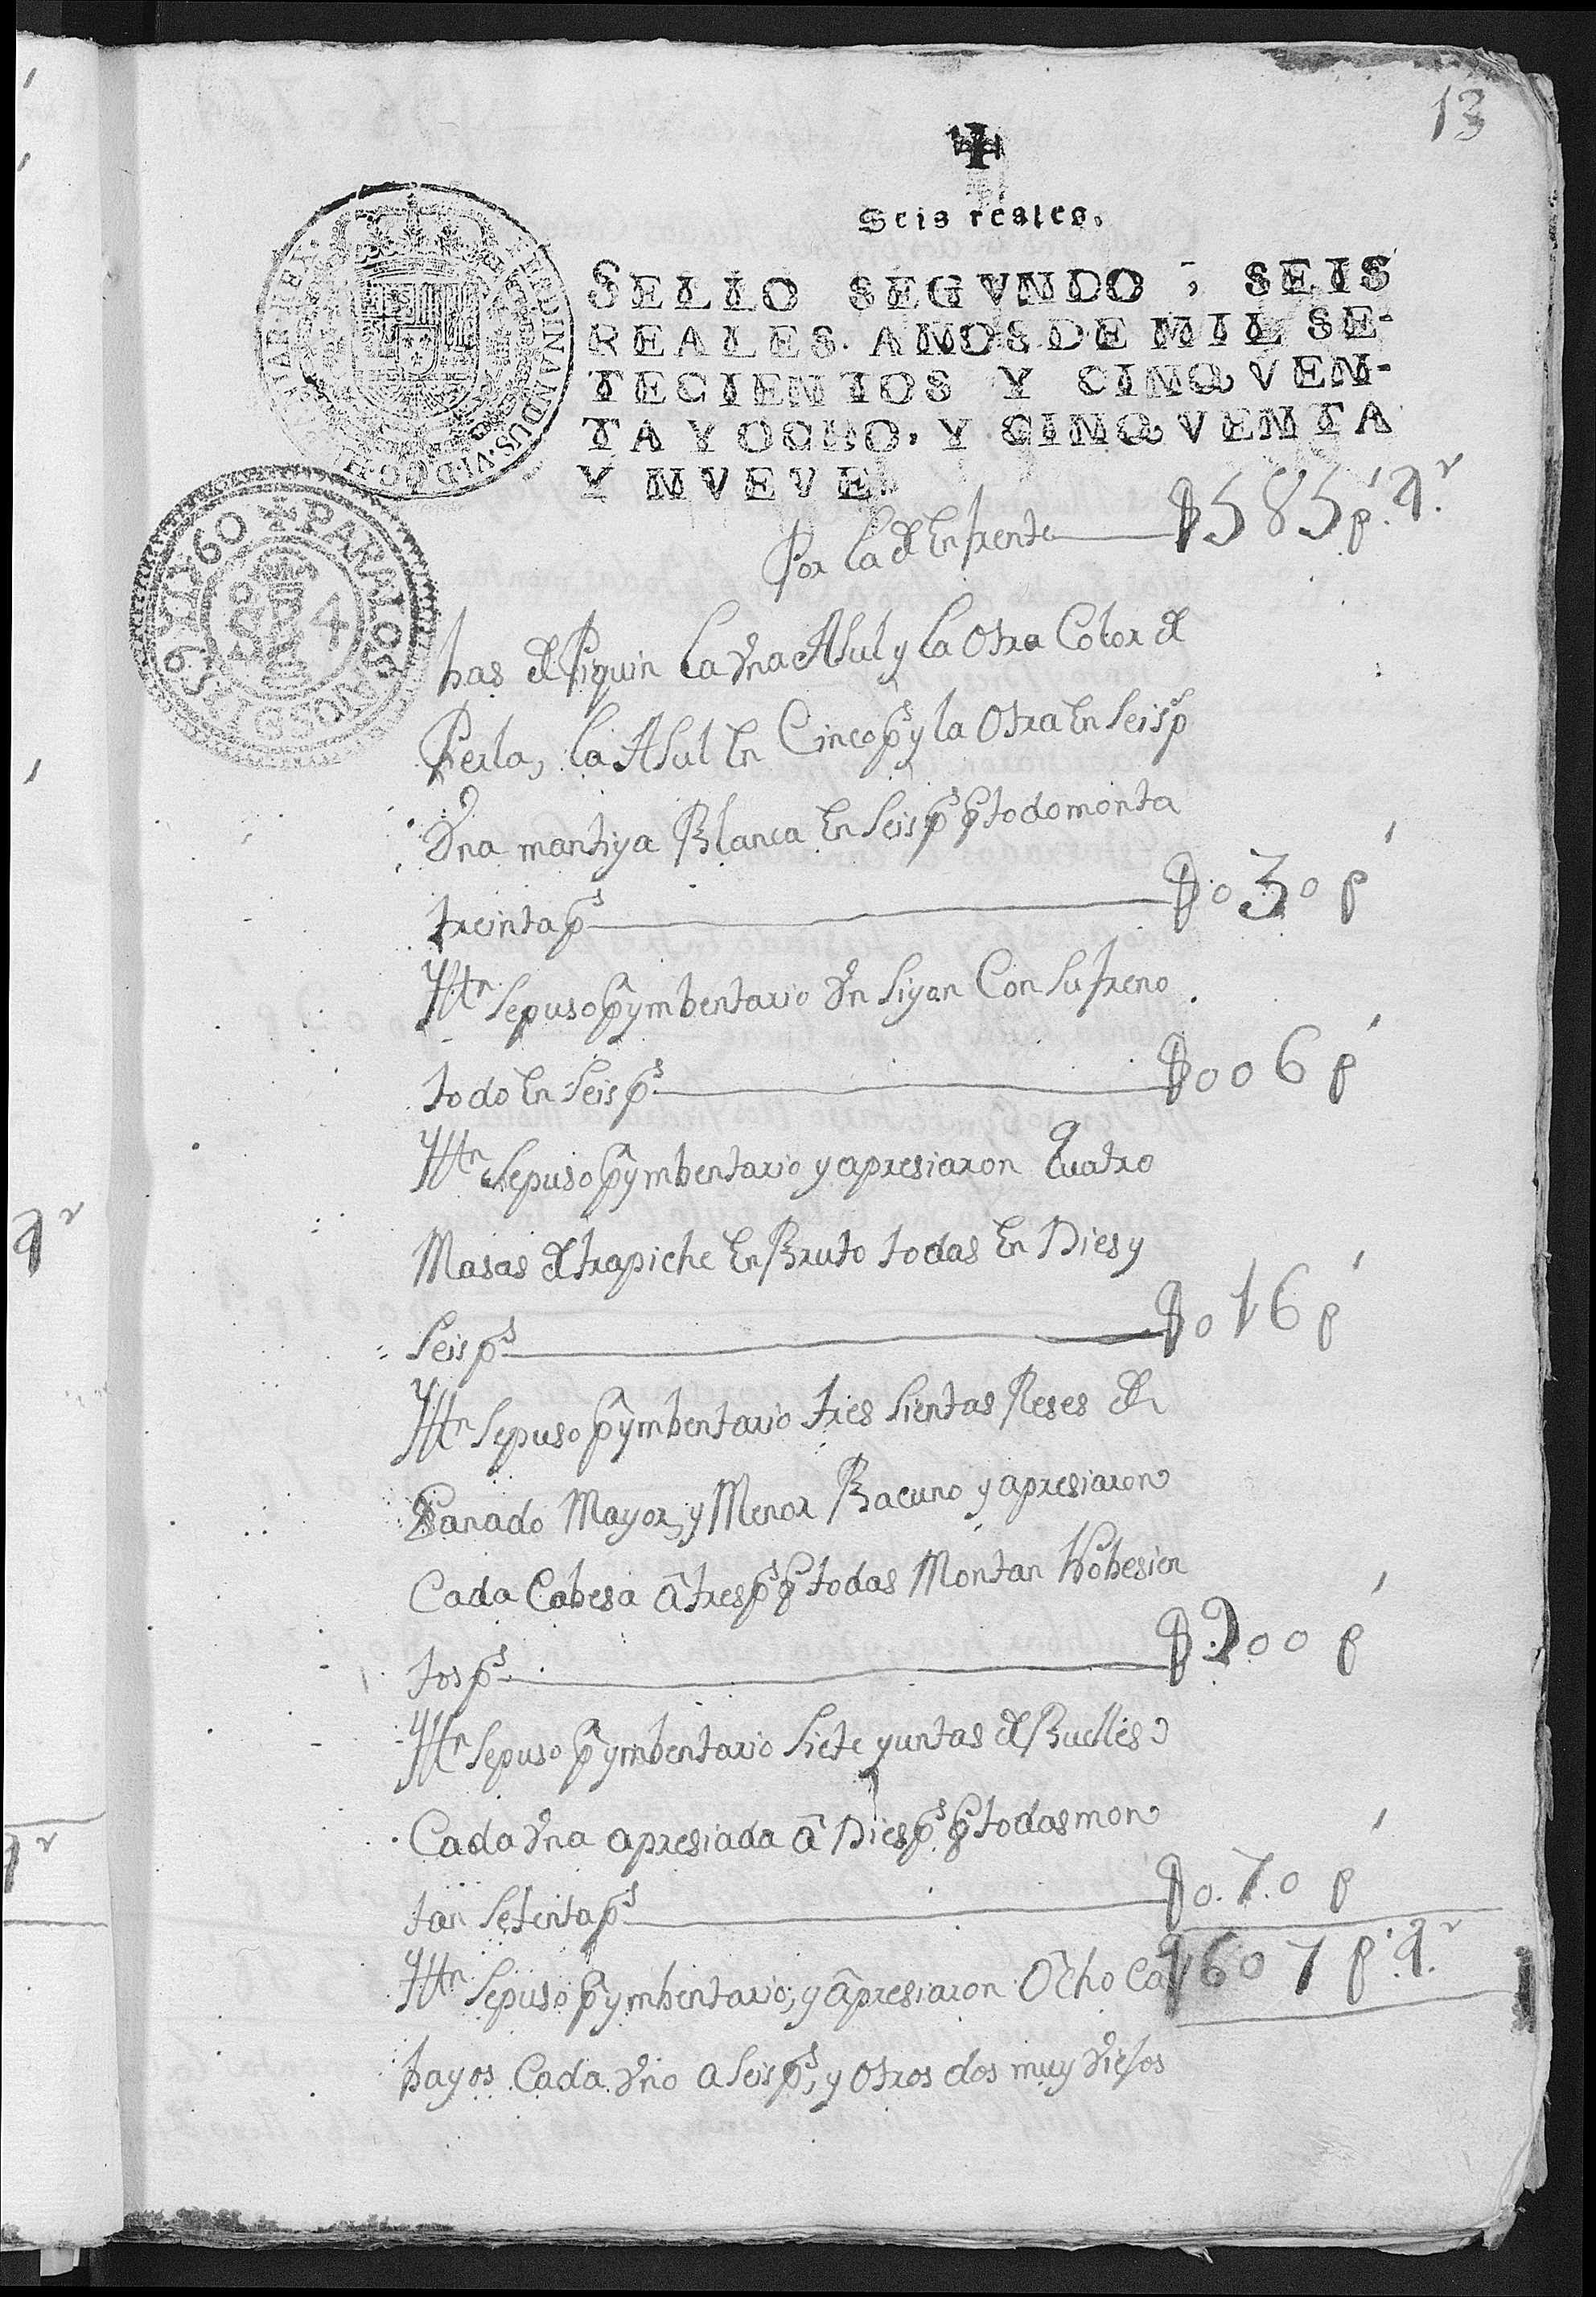 13
Seis reales.
SELLO SEGVNDO, SEIS
REALES. AÑOS DE MIL SE-
TECIENTOS Y CINQVEN-
TA Y OCHO, Y CINQVENTA
Y NVEVE.
FERDINANDUS.VI.D.G.
PARA LOS AÑOS D 1759 Y 1760
S 4
Por la de Enfrente $585 ps. 4 r
has de Piquin la Vna Asul y la Otra Color de
Perla, la Asul En Cinco ps y la Otra En Seis ps
Vna mantiya Blanca En Seis ps q todo monta
treinta ps $030 p
Yttn Sepuso pr ymbentario Vn Siyon Con Su freno
todo En Seis ps $006 p
Yttn Sepuso pr ymbentario y apresiaron quatro
Masas de trapiche En Bruto todas En Dies y
Seis ps $016 p
Yttn Sepuso pr ymbentario tres Sientas Reses de
Ganado Mayor, y Menor Bacuno y apresiaron
Cada Cabesa â tres ps q todas Montan Nobesien
tos ps $900 p
Yttn Sepuso pr ymbentario Siete yuntas de Bueÿes
Cada Vna apresiada â Dies ps q todas mon
tan Setenta ps $0.70 p
Yttn Sepuso pr ymbentario, y âpresiaron Ocho Ca
1607 p. 4 r
bayos Cada Vno a Seis ps, y Otros dos muy Viejos